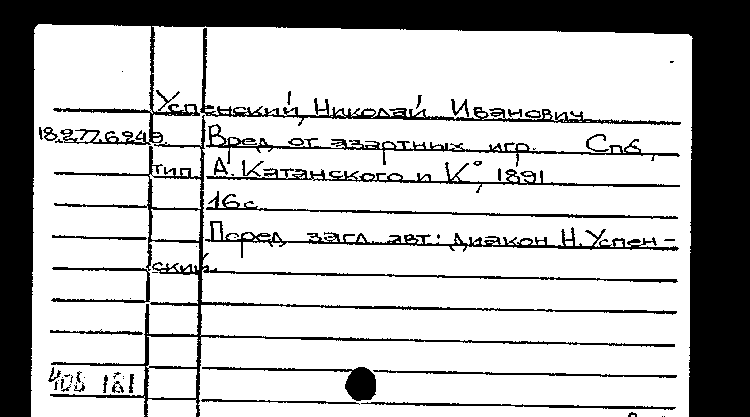 Успенский, Николай Иванович
18.277.6.249 Вред от азартных игр. Спб,
тип. А. Катанского и К°, 1891
16 с.
Перед загл. авт: диакон Н. Успен-
ский.
408 181